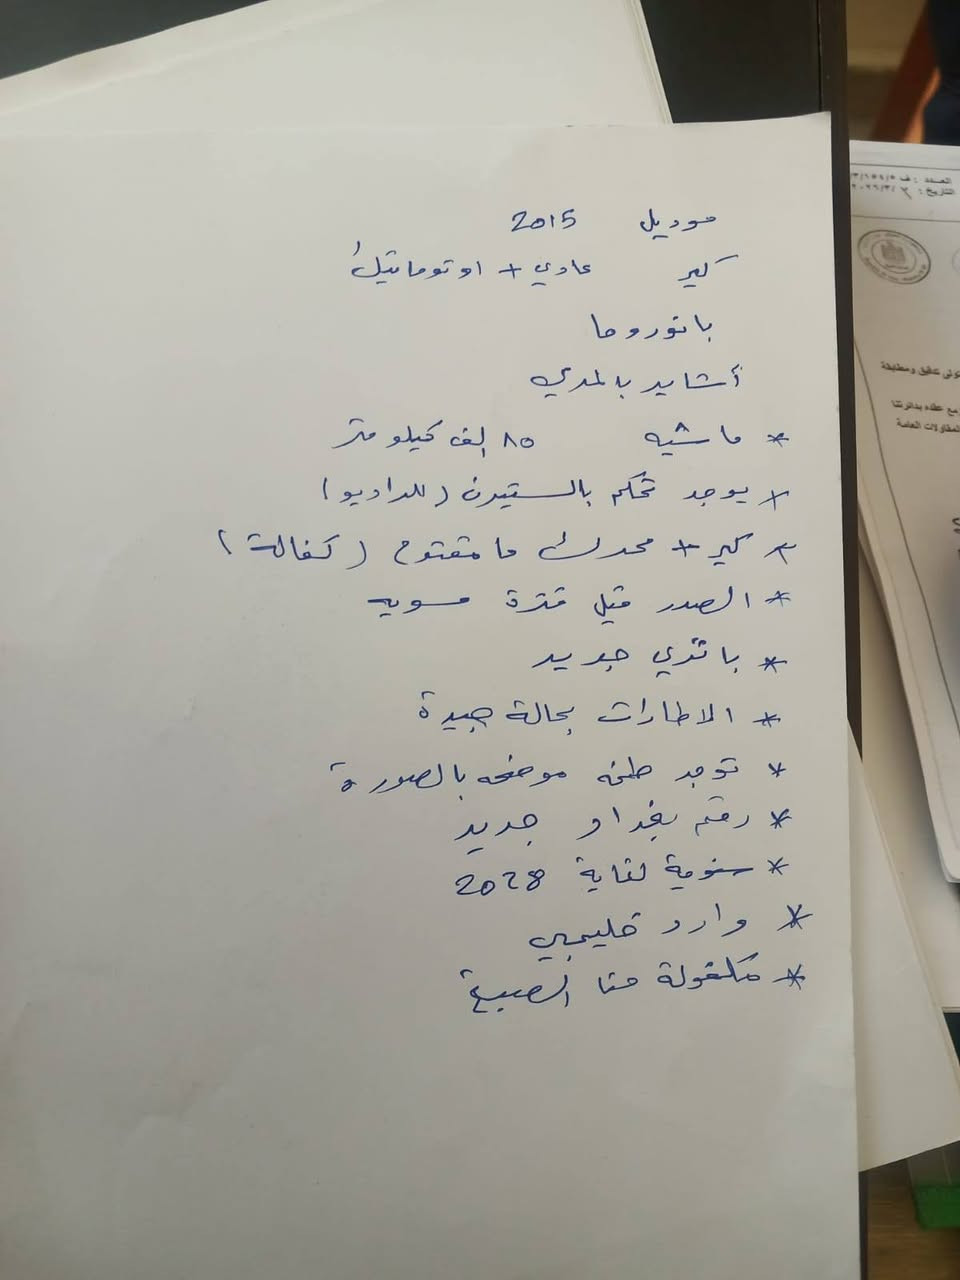 موديل 2015
كير عادي + اوتوماتيك
بانوروما
أشايد بالمدي
* ماشيه ٨٥ الف كيلو متر
* يوجد تحكم بالستيرن (للراديو)
* كير + محرك ما مفتوح (كفالة)
* الصدر قبل فترة مسويه
* باتري جديد
* الاطارات بحالة جيدة
* توجد طخه موضحه بالصورة
* رقم بغداد جديد
* سنوية لغاية 2028
* وارد خليجي
* مكفولة من الصبغ
العدد : ف
التاريخ :
تولى تدقيق ومطابقة
مع عقده بدائرتنا
المقاولات العامة